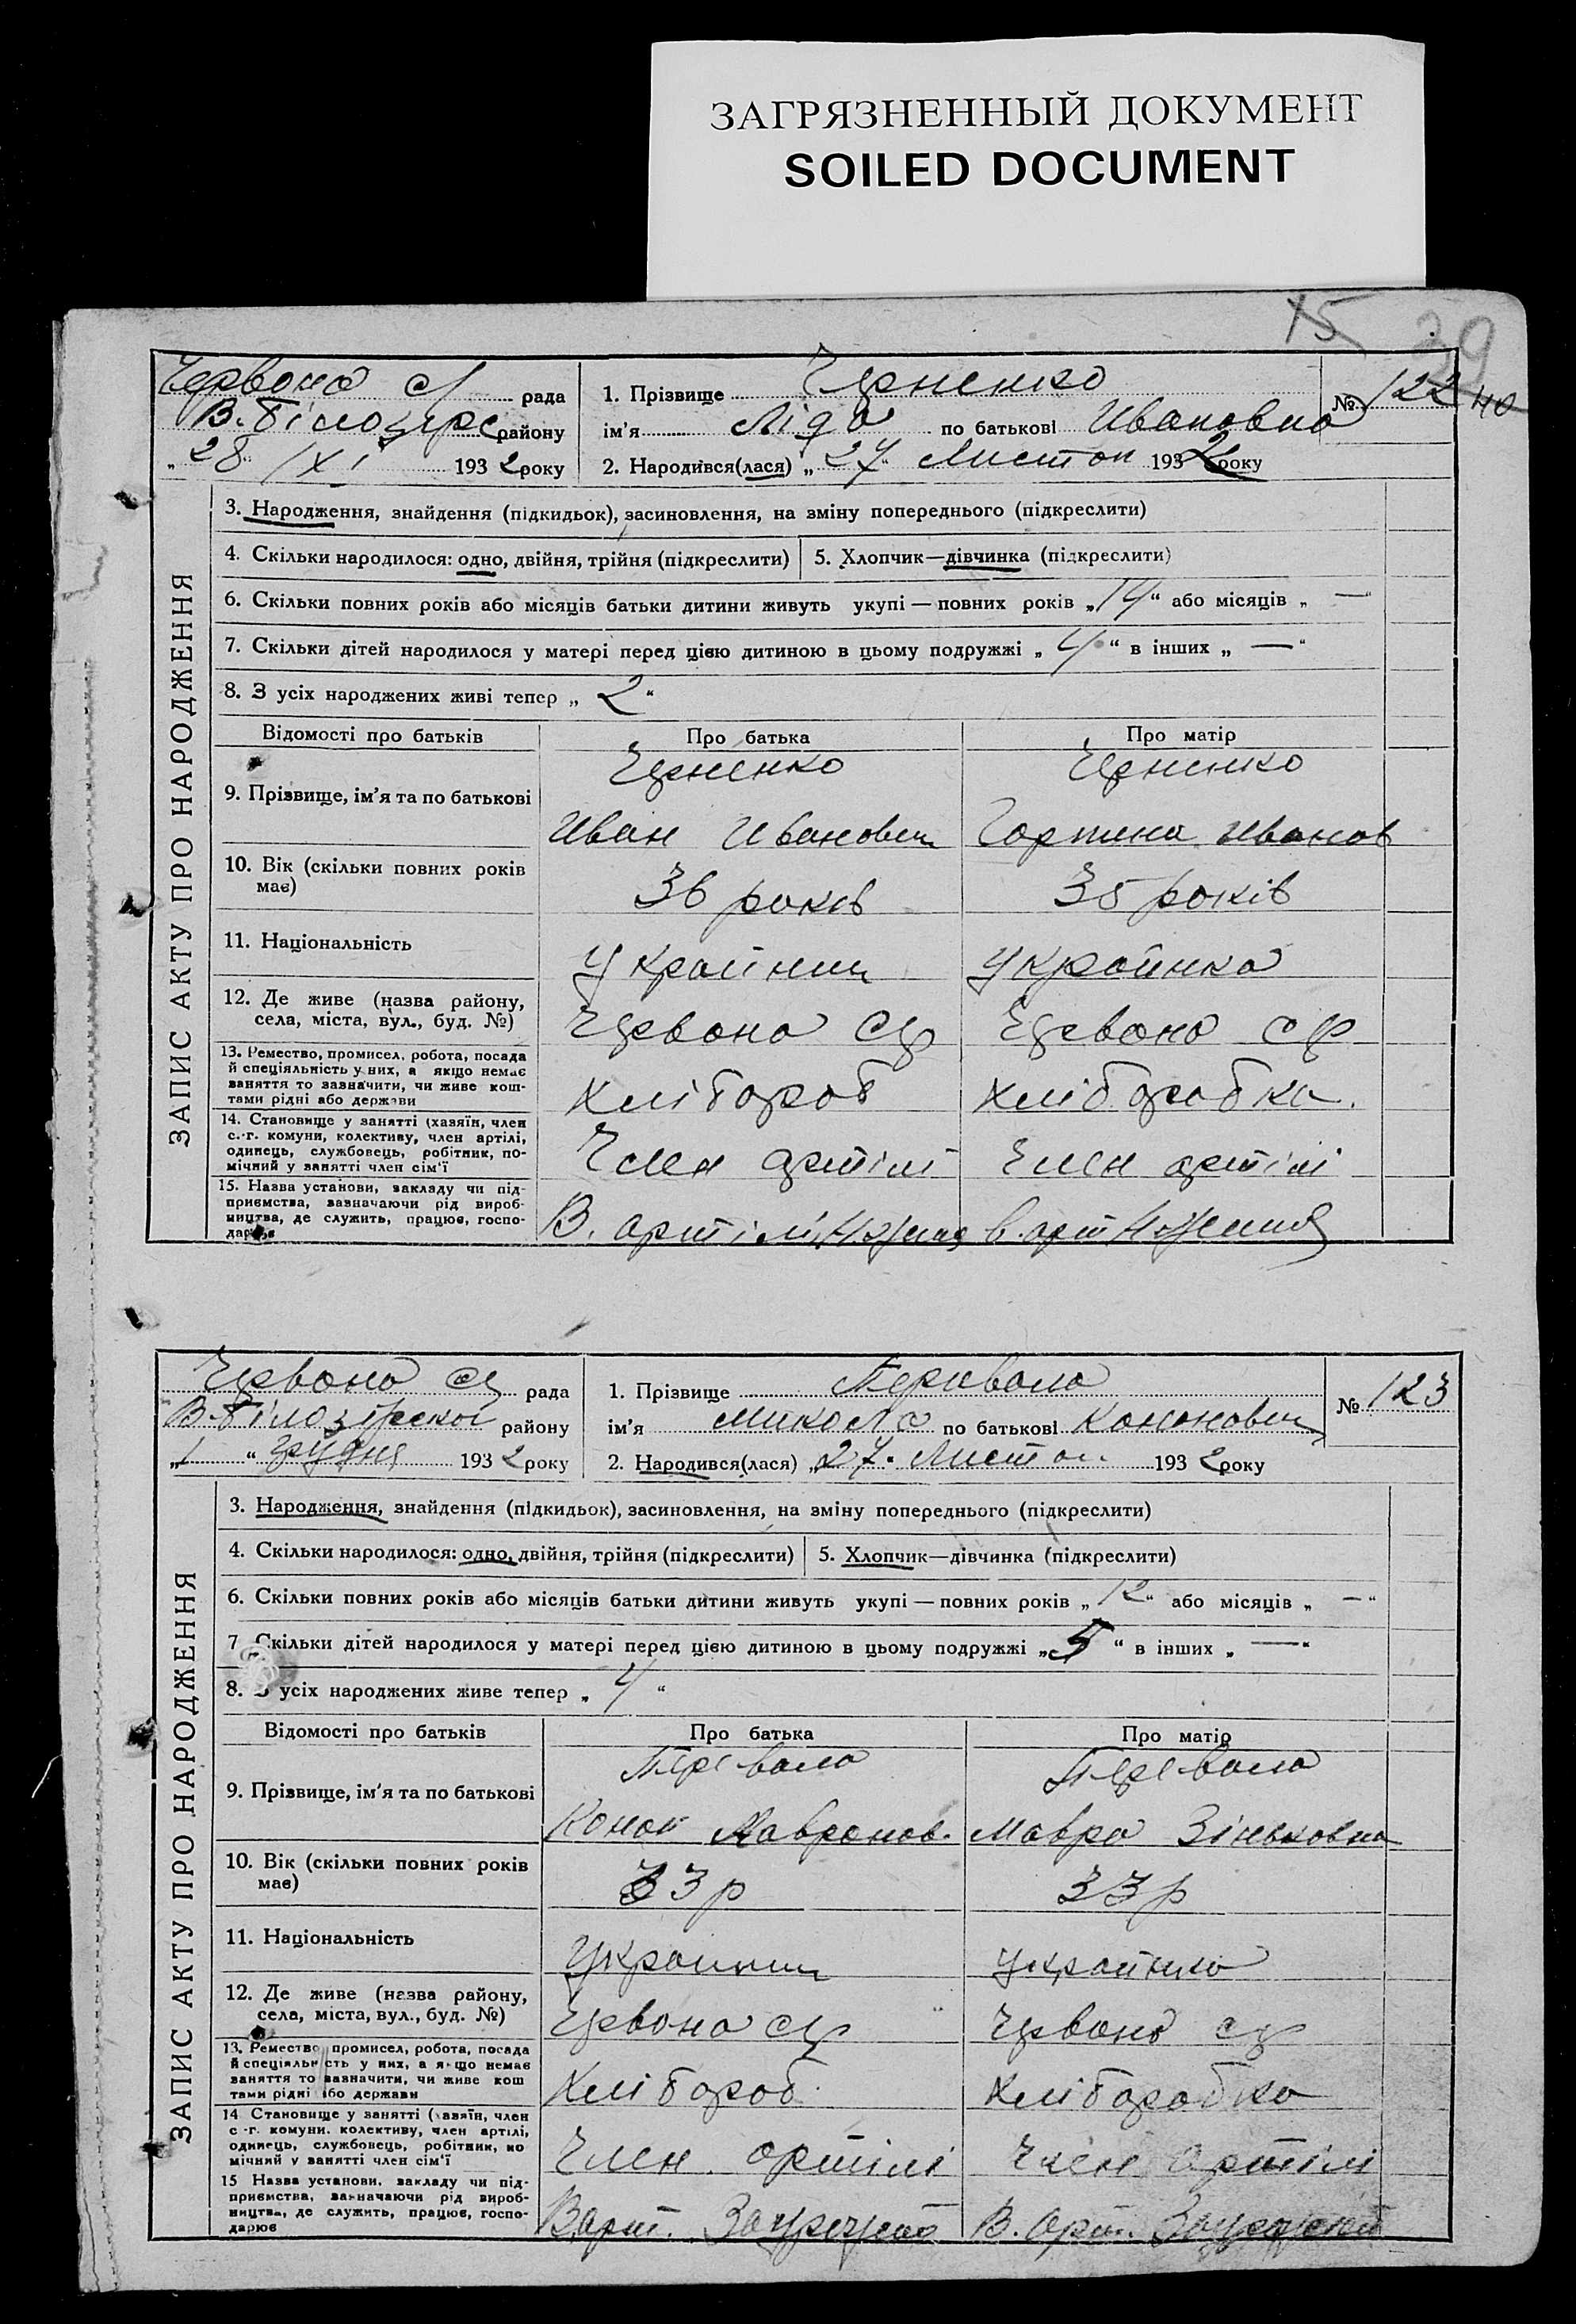 ЗАГРЯЗНЕННЫЙ ДОКУМЕНТ
SOILED DOCUMENT
15 39
40
Червона рада
В. Білозерс району
„ 28 /XI 1932 року
1. Прізвище Черненко № 122
ім'я Ліда по батькові Ивановна
2. Народився(лася) „ 27 “ Листоп 1932 року
ЗАПИС АКТУ ПРО НАРОДЖЕННЯ
3. Народження, знайдення (підкидьок), засиновлення, на зміну попереднього (підкреслити)
4. Скільки народилося: одно, двійня, трійня (підкреслити) 5. Хлопчик—дівчинка (підкреслити)
6. Скільки повних років або місяців батьки дитини живуть укупі — повних років „ 14 “ або місяців „ — “
7. Скільки дітей народилося у матері перед цією дитиною в цьому подружжі „ 4 “ в інших „ — “
8. З усіх народжених живі тепер „ 2 “
Відомості про батьків Про батька Про матір
Черненко Черненко
9. Прізвище, ім'я та по батькові
Иван Иванович Горпина Иванов
10. Вік (скільки повних років
має)
36 років 35 років
11. Національність
Украйниц Украйнка
12. Де живе (назва району,
села, міста, вул., буд. №)
Червона Червона
13. Ремество, промисел, робота, посада
й спеціяльність у них, а якщо немає
заняття то зазначити, чи живе кош-
тами рідні або держави
Хлібороб Хліборобка.
14. Становище у занятті (хазяїн, член
с.-г. комуни, колективу, член артілі,
одинець, службовець, робітник, по-
мічний у занятті член сім'ї
Член артілі Член артілі
15. Назва установи, закладу чи під-
приємства, зазначаючи рід вироб-
ництва, де служить, працює, госпо-
дарює
В. артілі в. арт
Червона рада
В-Білозірскої району
„ 1 “ грудня 1932 року
1. Прізвище Перевала № 123
ім'я Микола по батькові Кононович
2. Народився(лася) „ 27. Листоп. 1932 року
ЗАПИС АКТУ ПРО НАРОДЖЕННЯ
3. Народження, знайдення (підкидьок), засиновлення, на зміну попереднього (підкреслити)
4. Скільки народилося: одно, двійня, трійня (підкреслити) 5. Хлопчик—дівчинка (підкреслити)
6. Скільки повних років або місяців батьки дитини живуть укупі — повних років „ 12 “ або місяців „ — “
7 Скільки дітей народилося у матері перед цією дитиною в цьому подружжі „ 5 “ в інших „ — “
8. З усіх народжених живе тепер „ 4 “
Відомості про батьків Про батька Про матір
Перевала Перевала
9. Прізвище, ім'я та по батькові
Конон Мавра Зіньковна
10. Вік (скільки повних років
має)
33 р 33 р
11. Національність
Украиниц украйнка
12. Де живе (назва району,
села, міста, вул., буд. №)
Червона Червона
13. Ремество, промисел, робота, посада
й спеціяльність у них, а якщо немає
заняття то зазначити, чи живе кош
тами рідні або держави
Хлібороб. Хліборобка
14 Становище у занятті (хазяїн, член
с-г. комуни. колективу, член артілі,
одинець, службовець, робітник, по
мічний у занятті член сім'ї
Член артілі Член артілі
15 Назва установи, закладу чи під-
приємства, зазначаючи рід вироб-
ництва, де служить, працює, госпо-
дарює
В арт. В. арт.